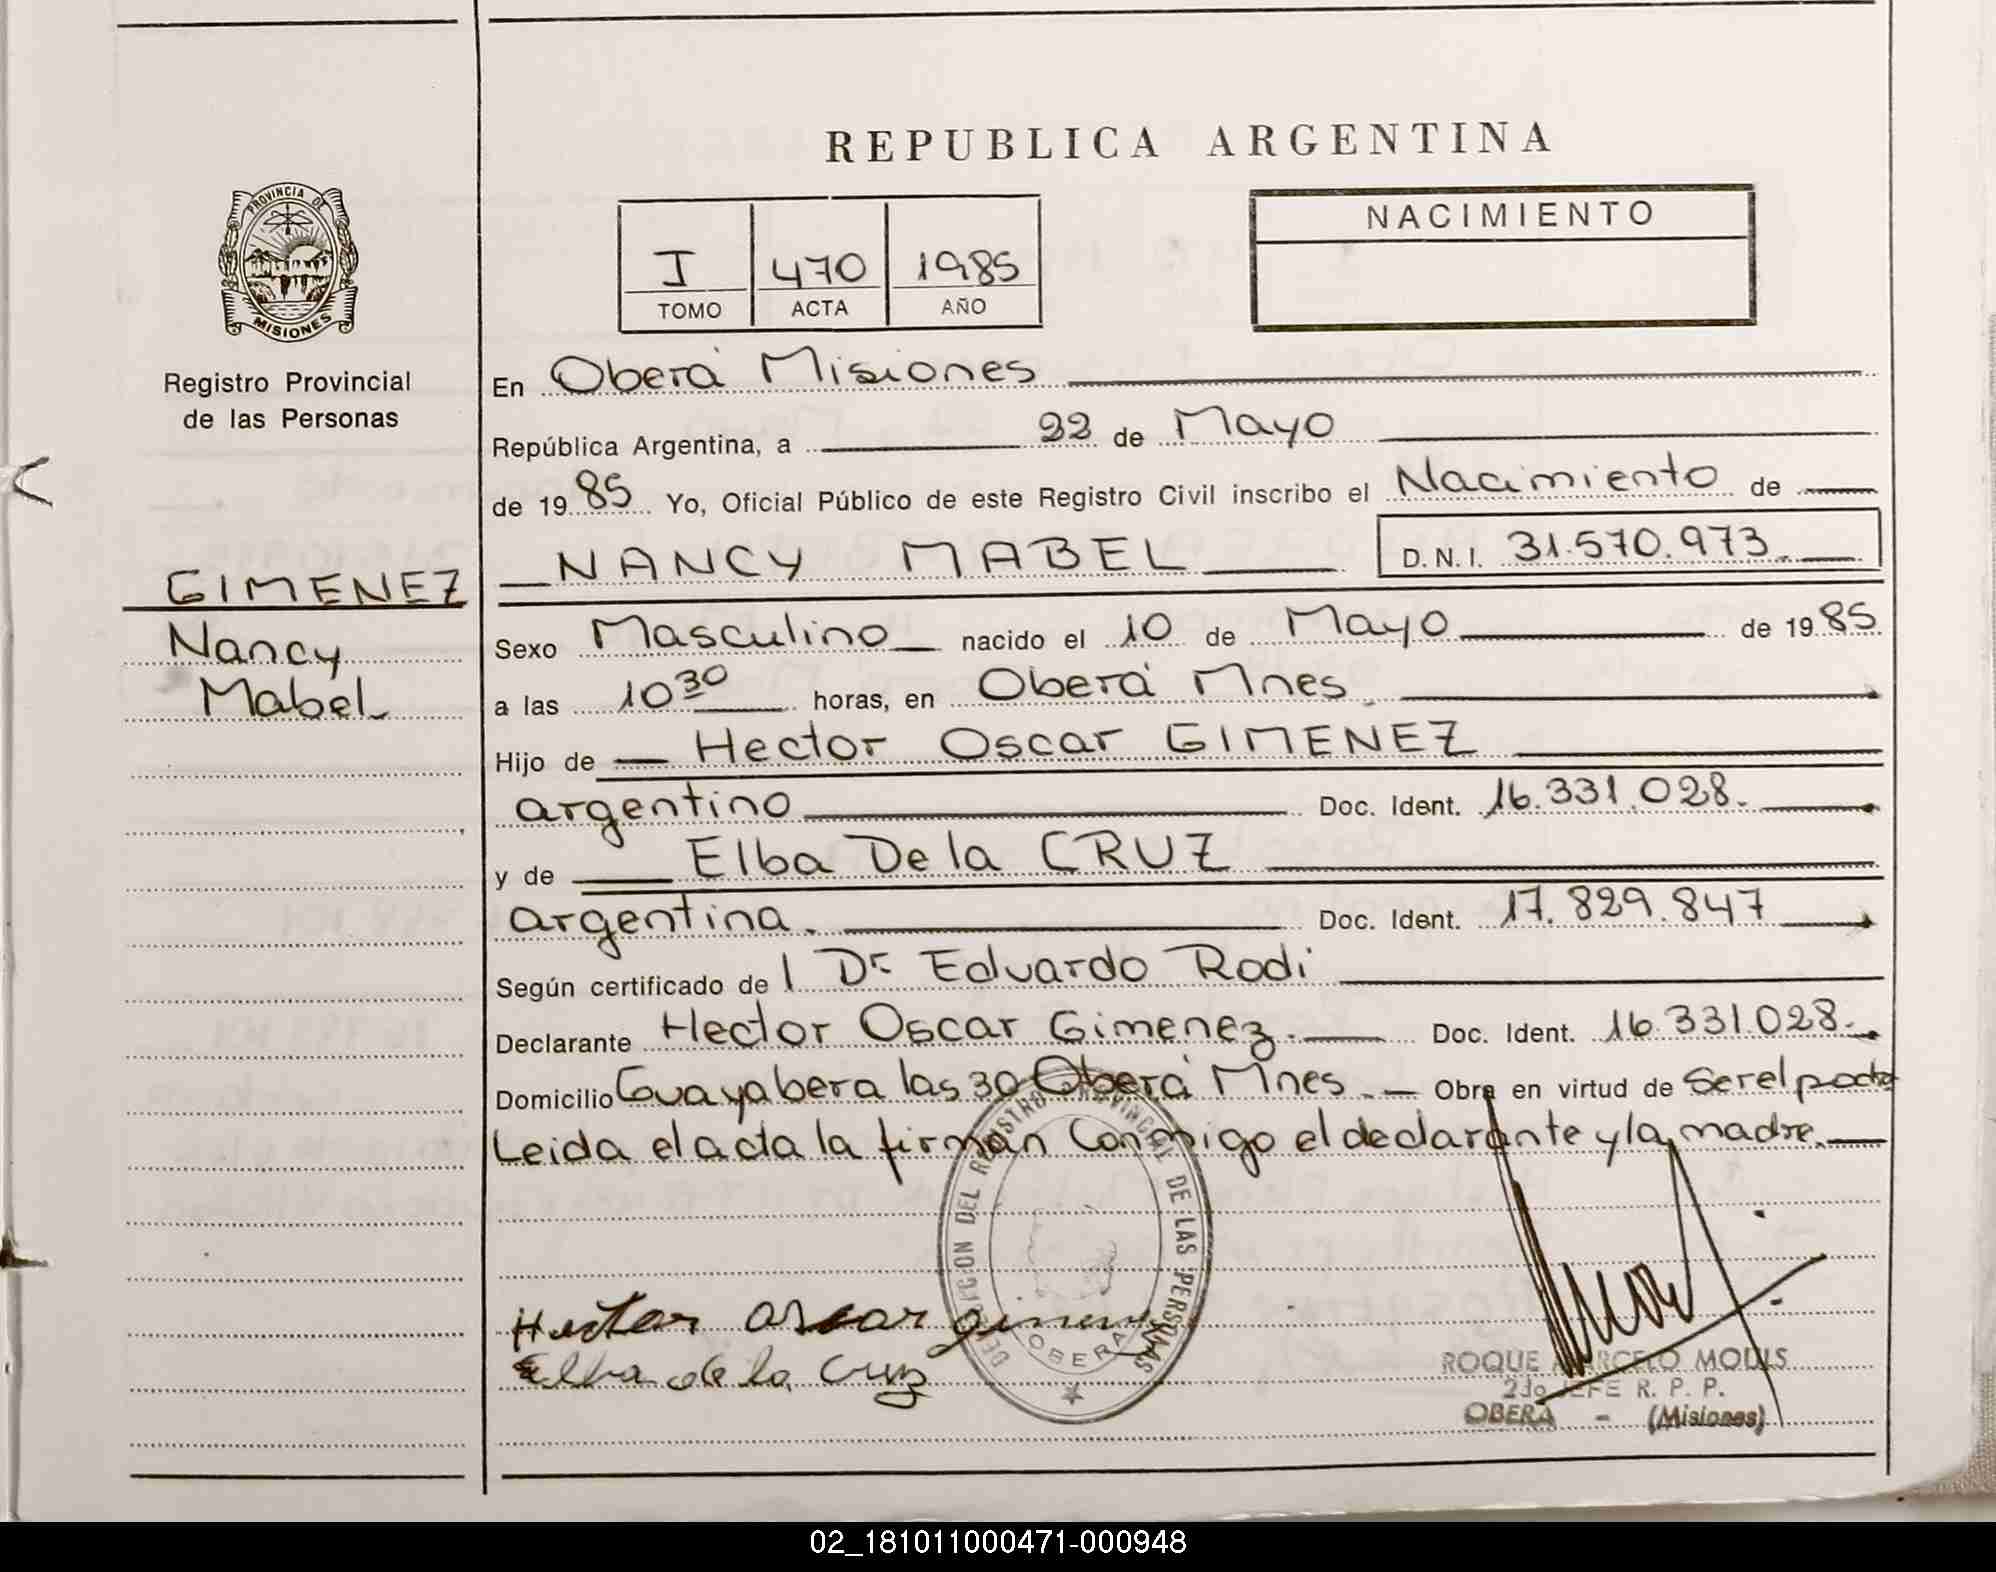 REPUBLICA ARGENTINA
PROVINCIA DE
MISIONES
Registro Provincial
de las Personas
I 470 1985
TOMO ACTA AÑO
NACIMIENTO
En Oberá Misiones
República Argentina, a 22 de Mayo
de 1985 Yo, Oficial Público de este Registro Civil inscribo el Nacimiento de
NANCY MABEL D.N.I. 31.570.973.
GIMENEZ
Nancy
Mabel
Sexo Masculino nacido el 10 de Mayo de 1985
a las 10 30 horas, en Oberá Mnes
Hijo de Hector Oscar GIMENEZ
argentino Doc. Ident. 16.331.028.
y de Elba De la CRUZ
argentina. Doc. Ident. 17.829.847
Según certificado del Dr Eduardo Rodi
Declarante Hector Oscar Gimenez. Doc. Ident. 16.331.028.
Domicilio Guayabera las 30 Oberá Mnes. Obra en virtud de Ser el padre
Leida el acta la firman Conmigo el declarante y la madre.
DELEGACION DEL REGISTRO PROVINCIAL DE LAS PERSONAS
OBERA
Hector oscar gimenez
Elba de la Cruz
ROQUE MARCELO MODIS
2do JEFE R. P. P.
OBERA - (Misiones)
02_181011000471-000948